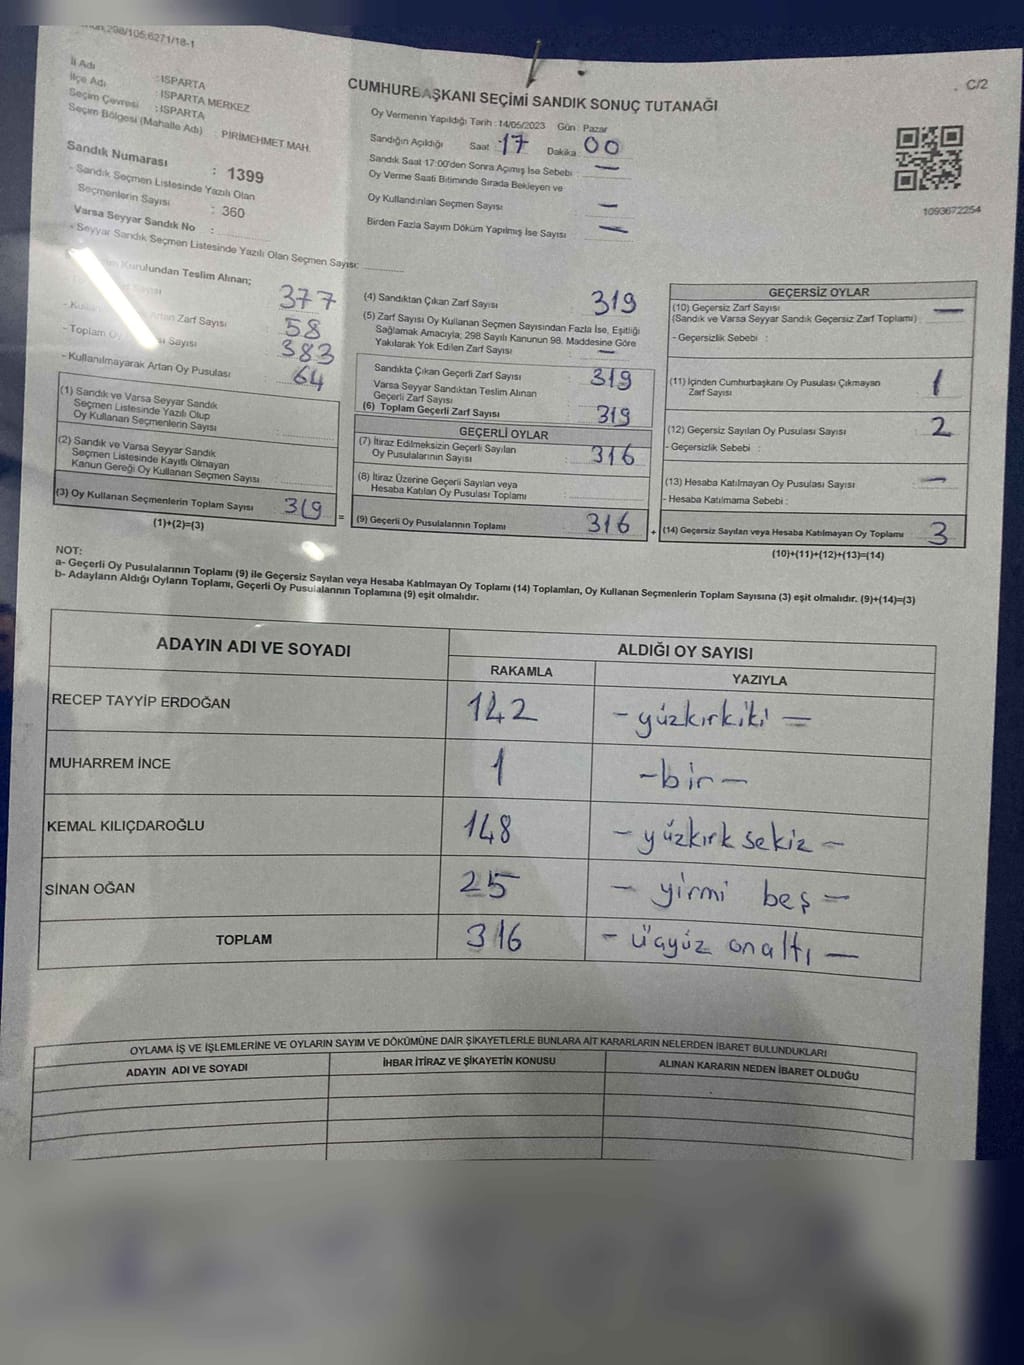 298/105;6271/18-1
C/2
İl Adı : ISPARTA
İlçe Adı : ISPARTA MERKEZ
Seçim Çevresi : ISPARTA
Seçim Bölgesi (Mahalle Adı) : PİRİMEHMET MAH.
Sandık Numarası : 1399
- Sandık Seçmen Listesinde Yazılı Olan
Seçmenlerin Sayısı : 360
Varsa Seyyar Sandık No :
- Seyyar Sandık Seçmen Listesinde Yazılı Olan Seçmen Sayısı:
CUMHURBAŞKANI SEÇİMİ SANDIK SONUÇ TUTANAĞI
Oy Vermenin Yapıldığı Tarih : 14/05/2023 Gün : Pazar
Sandığın Açıldığı Saat : 17 Dakika 00
Sandık Saat 17:00'den Sonra Açımış İse Sebebi : —
Oy Verme Saati Bitiminde Sırada Bekleyen ve
Oy Kullandırılan Seçmen Sayısı : —
Birden Fazla Sayım Döküm Yapılmış İse Sayısı : —
1093672254
Kurulundan Teslim Alınan;
Sayısı : 377
Artan Zarf Sayısı : 58
- Toplam Oy Sayısı : 383
- Kullanılmayarak Artan Oy Pusulası : 64
(1) Sandık ve Varsa Seyyar Sandık
Seçmen Listesinde Yazılı Olup
Oy Kullanan Seçmenlerin Sayısı :
(2) Sandık ve Varsa Seyyar Sandık
Seçmen Listesinde Kayıtlı Olmayan
Kanun Gereği Oy Kullanan Seçmen Sayısı :
(3) Oy Kullanan Seçmenlerin Toplam Sayısı 319
(1)+(2)=(3)
=
(4) Sandıktan Çıkan Zarf Sayısı : 319
(5) Zarf Sayısı Oy Kullanan Seçmen Sayısından Fazla İse, Eşitliği
Sağlamak Amacıyla, 298 Sayılı Kanunun 98. Maddesine Göre
Yakılarak Yok Edilen Zarf Sayısı : —
Sandıkta Çıkan Geçerli Zarf Sayısı : 319
Varsa Seyyar Sandıktan Teslim Alınan
Geçerli Zarf Sayısı
(6) Toplam Geçerli Zarf Sayısı : 319
GEÇERLİ OYLAR
(7) İtiraz Edilmeksizin Geçerli Sayılan
Oy Pusulalarının Sayısı : 316
(8) İtiraz Üzerine Geçerli Sayılan veya
Hesaba Katılan Oy Pusulası Toplamı :
(9) Geçerli Oy Pusulalarının Toplamı : 316
+
GEÇERSİZ OYLAR
(10) Geçersiz Zarf Sayısı
(Sandık ve Varsa Seyyar Sandık Geçersiz Zarf Toplamı) : —
- Geçersizlik Sebebi :
(11) İçinden Cumhurbaşkanı Oy Pusulası Çıkmayan
Zarf Sayısı : 1
(12) Geçersiz Sayılan Oy Pusulası Sayısı : 2
- Geçersizlik Sebebi :
(13) Hesaba Katılmayan Oy Pusulası Sayısı : —
- Hesaba Katılmama Sebebi :
(14) Geçersiz Sayılan veya Hesaba Katılmayan Oy Toplamı 3
(10)+(11)+(12)+(13)=(14)
NOT:
a- Geçerli Oy Pusulalarının Toplamı (9) ile Geçersiz Sayılan veya Hesaba Katılmayan Oy Toplamı (14) Toplamları, Oy Kullanan Seçmenlerin Toplam Sayısına (3) eşit olmalıdır. (9)+(14)=(3)
b- Adayların Aldığı Oyların Toplamı, Geçerli Oy Pusulalarının Toplamına (9) eşit olmalıdır.
ADAYIN ADI VE SOYADI
ALDIĞI OY SAYISI
RAKAMLA YAZIYLA
RECEP TAYYİP ERDOĞAN 142 - yüzkırkiki =
MUHARREM İNCE 1 - bir -
KEMAL KILIÇDAROĞLU 148 - yüzkırk sekiz -
SİNAN OĞAN 25 - yirmi beş -
TOPLAM 316 - üçyüz onaltı -
OYLAMA İŞ VE İŞLEMLERİNE VE OYLARIN SAYIM VE DÖKÜMÜNE DAİR ŞİKAYETLERLE BUNLARA AİT KARARLARIN NELERDEN İBARET BULUNDUKLARI
ADAYIN ADI VE SOYADI İHBAR İTİRAZ VE ŞİKAYETİN KONUSU ALINAN KARARIN NEDEN İBARET OLDUĞU